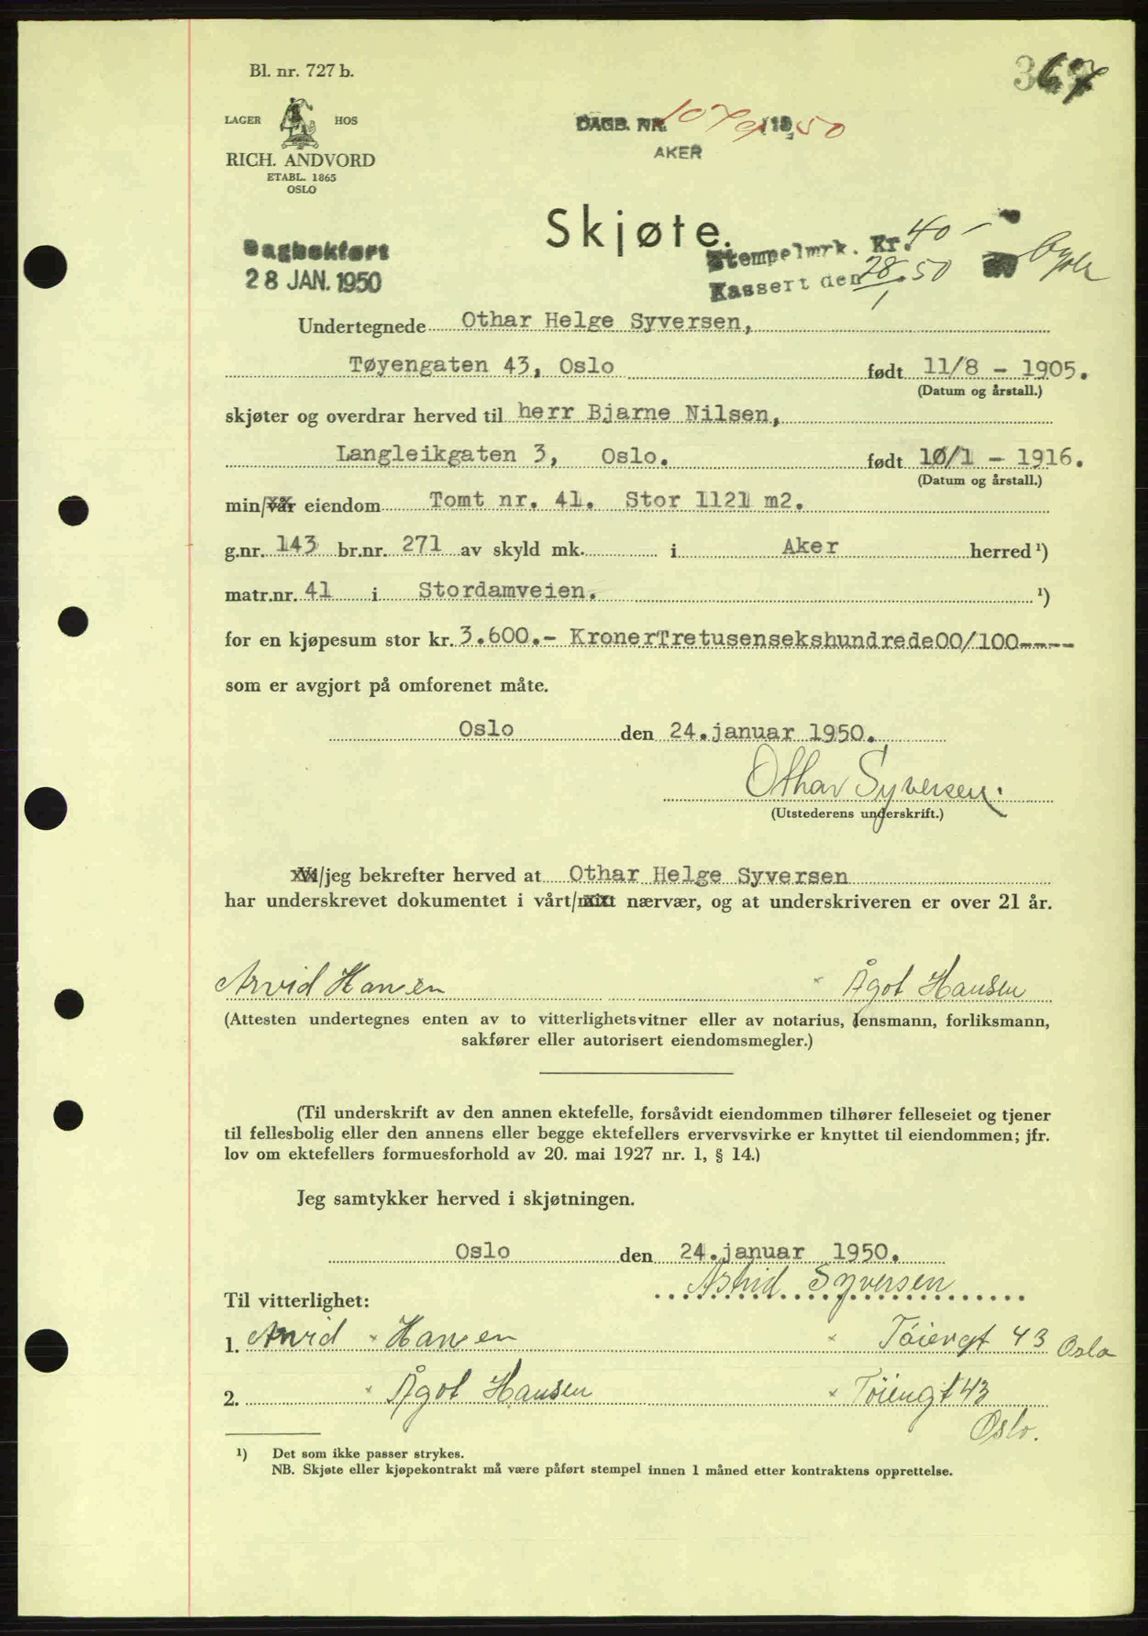 Bl. nr. 727 b.
367
LAGER HOS
RICH. ANDVORD
ETABL. 1865
OSLO
DAGB. NR. 19 50
AKER
Skjøte.
Dagbokført
28 JAN. 1950
Stempelmrk. Kr. 40 -
Kassert den 28/1 50
Undertegnede Othar Helge Syversen,
Tøyengaten 43, Oslo født 11/8 - 1905.
(Datum og årstall.)
skjøter og overdrar herved til herr Bjarne Nilsen,
Langleikgaten 3, Oslo. født 10/1 - 1916.
(Datum og årstall.)
min/vår eiendom Tomt nr. 41. Stor 1121 m2.
g.nr. 143 br.nr. 271 av skyld mk. i Aker herred ¹)
matr.nr. 41 i Stordamveien. ¹)
for en kjøpesum stor kr. 3.600.- KronerTretusensekshundrede00/100----
som er avgjort på omforenet måte.
Oslo den 24.januar 1950.
Othar Syversen.
(Utstederens underskrift.)
Vi/jeg bekrefter herved at Othar Helge Syversen
har underskrevet dokumentet i vårt/mitt nærvær, og at underskriveren er over 21 år.
Arvid Hansen Ågot Hansen
(Attesten undertegnes enten av to vitterlighetsvitner eller av notarius, lensmann, forliksmann,
sakfører eller autorisert eiendomsmegler.)
(Til underskrift av den annen ektefelle, forsåvidt eiendommen tilhører felleseiet og tjener
til fellesbolig eller den annens eller begge ektefellers ervervsvirke er knyttet til eiendommen; jfr.
lov om ektefellers formuesforhold av 20. mai 1927 nr. 1, § 14.)
Jeg samtykker herved i skjøtningen.
Oslo den 24.januar 1950.
Astrid Syversen
Til vitterlighet:
1. Arvid Hansen Töiengt 43 Oslo
2. Ågot Hansen Töiengt 43
Oslo.
¹) Det som ikke passer strykes.
NB. Skjøte eller kjøpekontrakt må være påført stempel innen 1 måned etter kontraktens opprettelse.